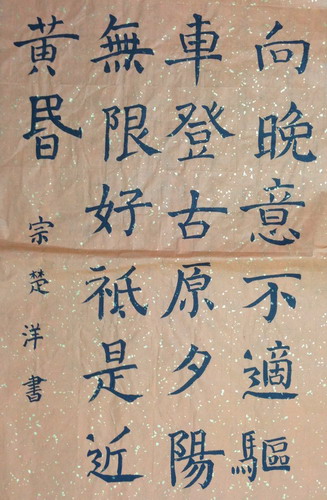 向晚意不適驅
車登古原夕陽
無限好祗是近
黃昬
宗楚洋書